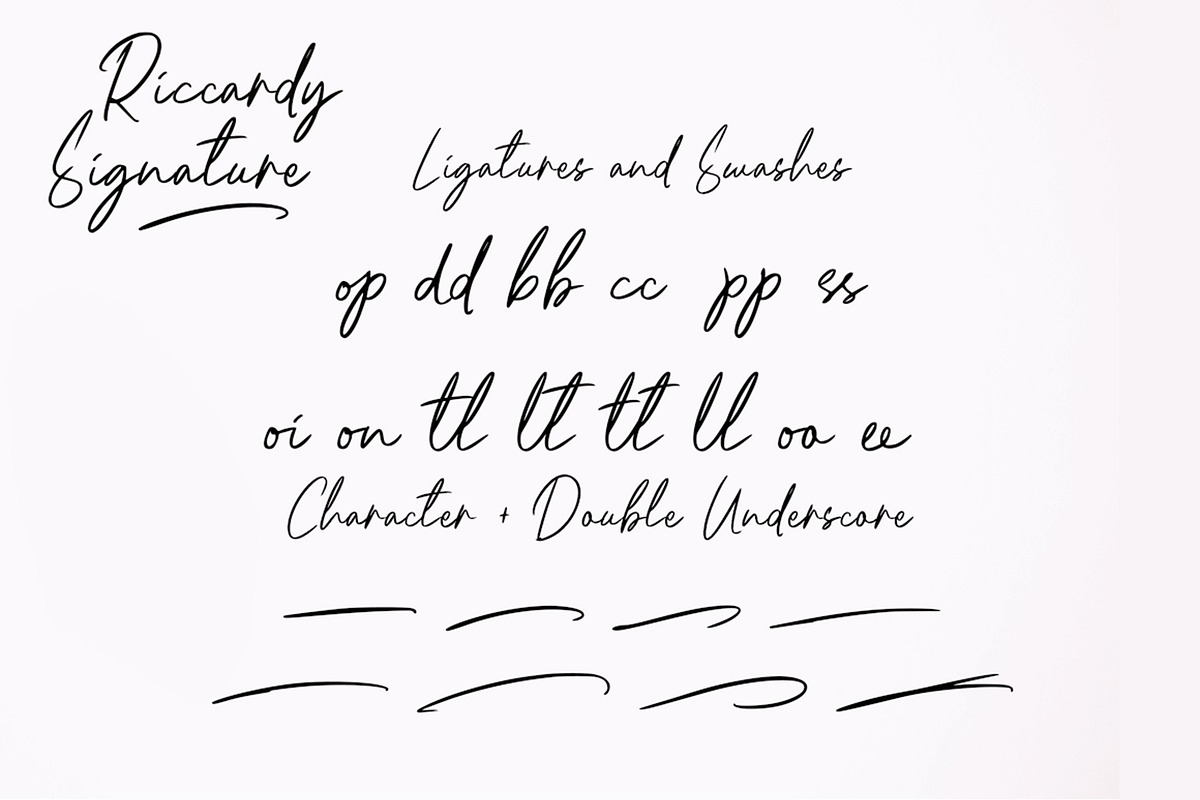 Riccardy
Signature
Ligatures and Swashes
op dd bb cc pp ss
oi on tl lt tt ll oo ee
Character + Double Underscore